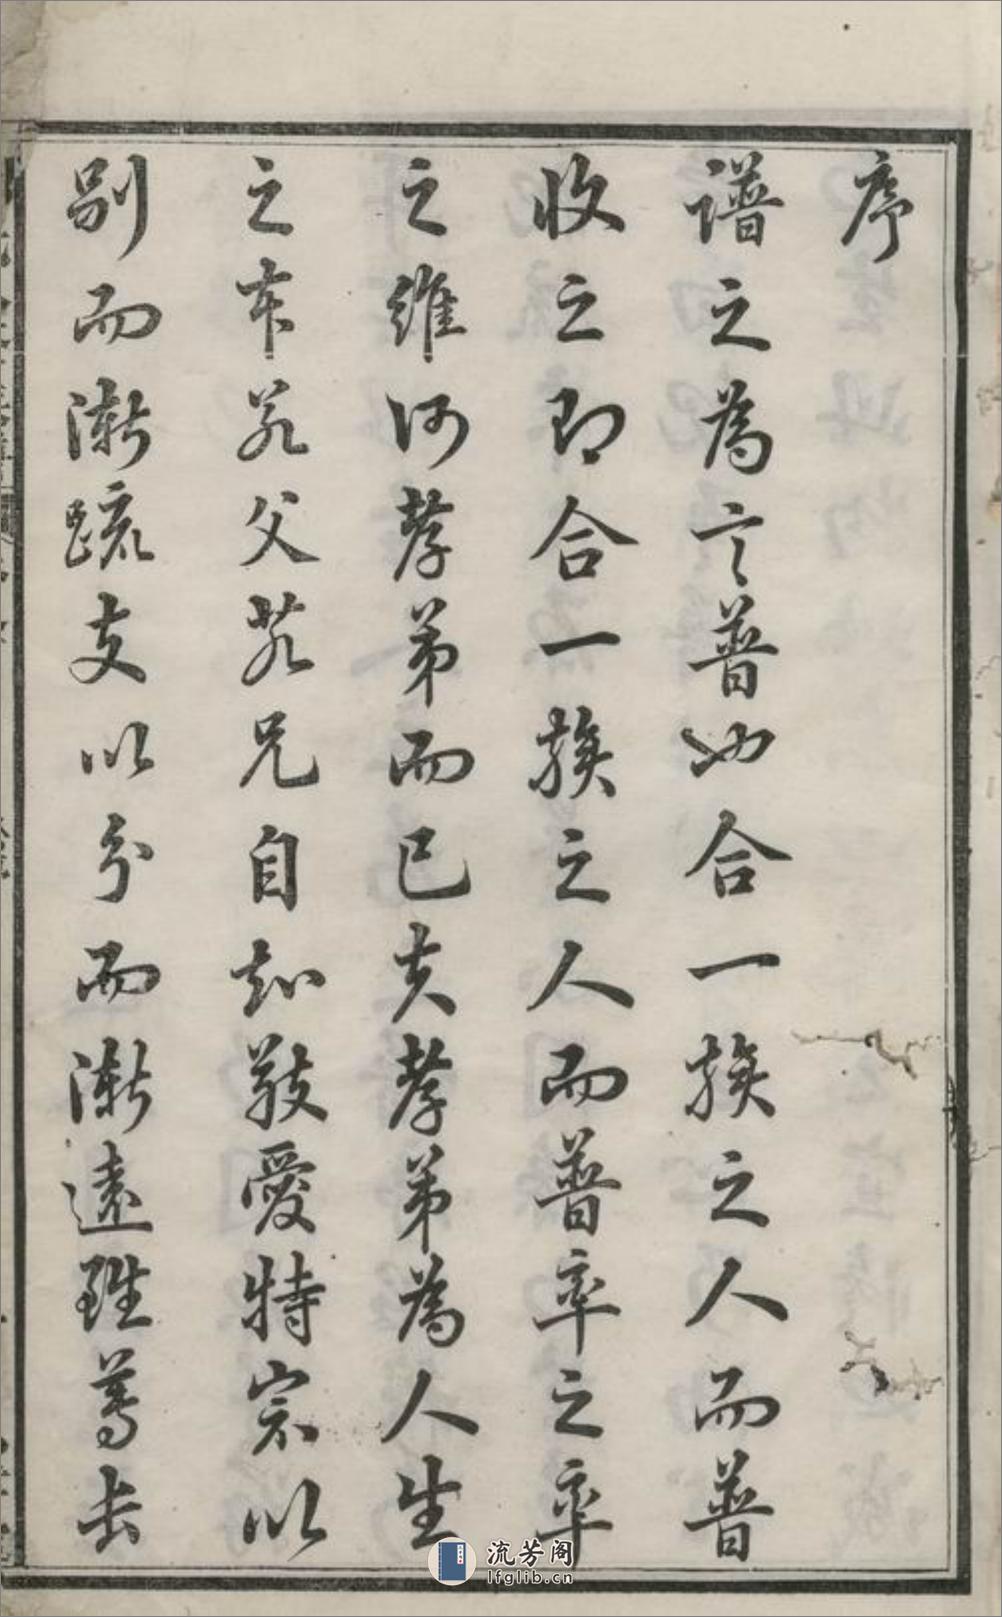 序
譜之為言普也合一族之人而普
收之即合一族之人而普率之率
之維何孝弟而已夫孝弟為人生
之本若父若兄自知敬愛特宗以
別而漸疏支以分而漸遠雖尊長
流芳阁
lfglib.cn